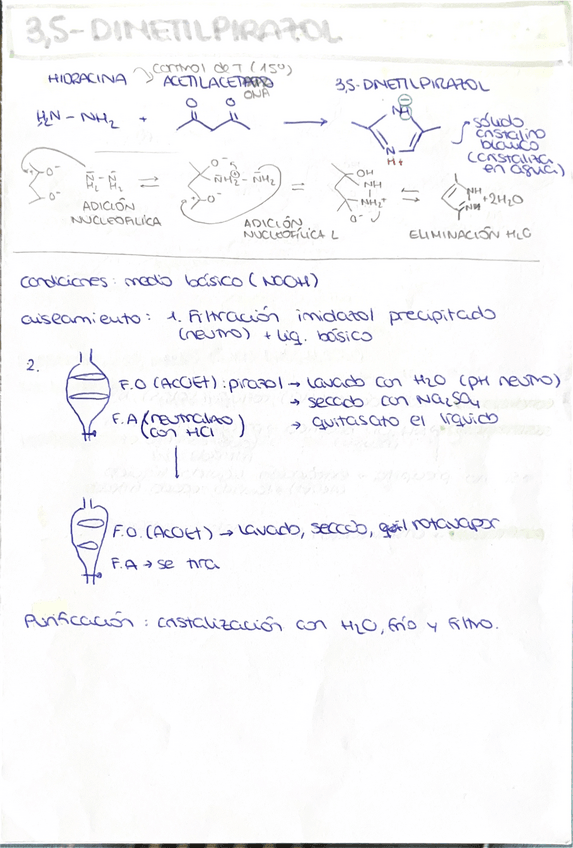 3,5-DIMETILPIRAZOL
control de T (15º)
HIDRACINA ACETILACETONA 3,5-DMETILPIRAZOL
O O
H₂N - NH₂ + → NH ⊖
N
H+
sólido
cristalino
blanco
(cristaliza
en agua)
ADICIÓN
NUCLEOFILICA
ADICIÓN
NUCLEOFÍLICA 2
ELIMINACIÓN H₂O
+2H₂O
condiciones: medio básico (NaOH)
aislamiento: 1. Filtración imidazol precipitado
(neutro) + liq. básico
2.
F.O (AcOEt): pirazol → lavado con H₂O (pH neutro)
→ secado con Na₂SO₄
→ quitasato el líquido
F.A (neutralizado
con HCl)
F.O. (AcOEt) → lavado, secado, rotavapor
F.A → se tira
Purificación: cristalización con H₂O, frío y filtro.